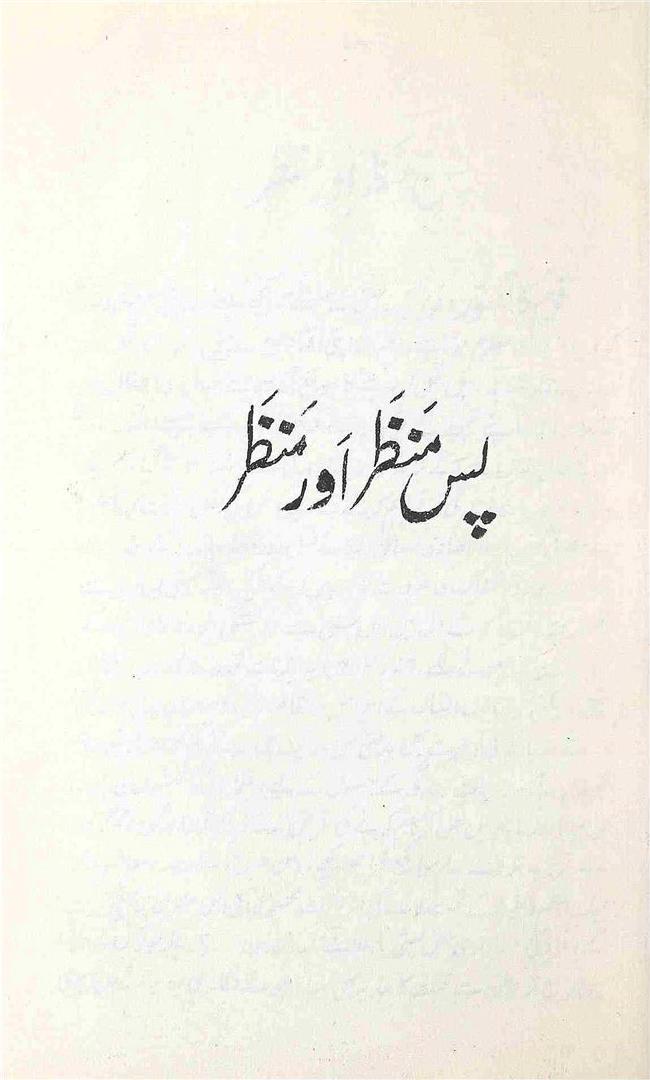 پس مَنظَر اَور مَنظَر